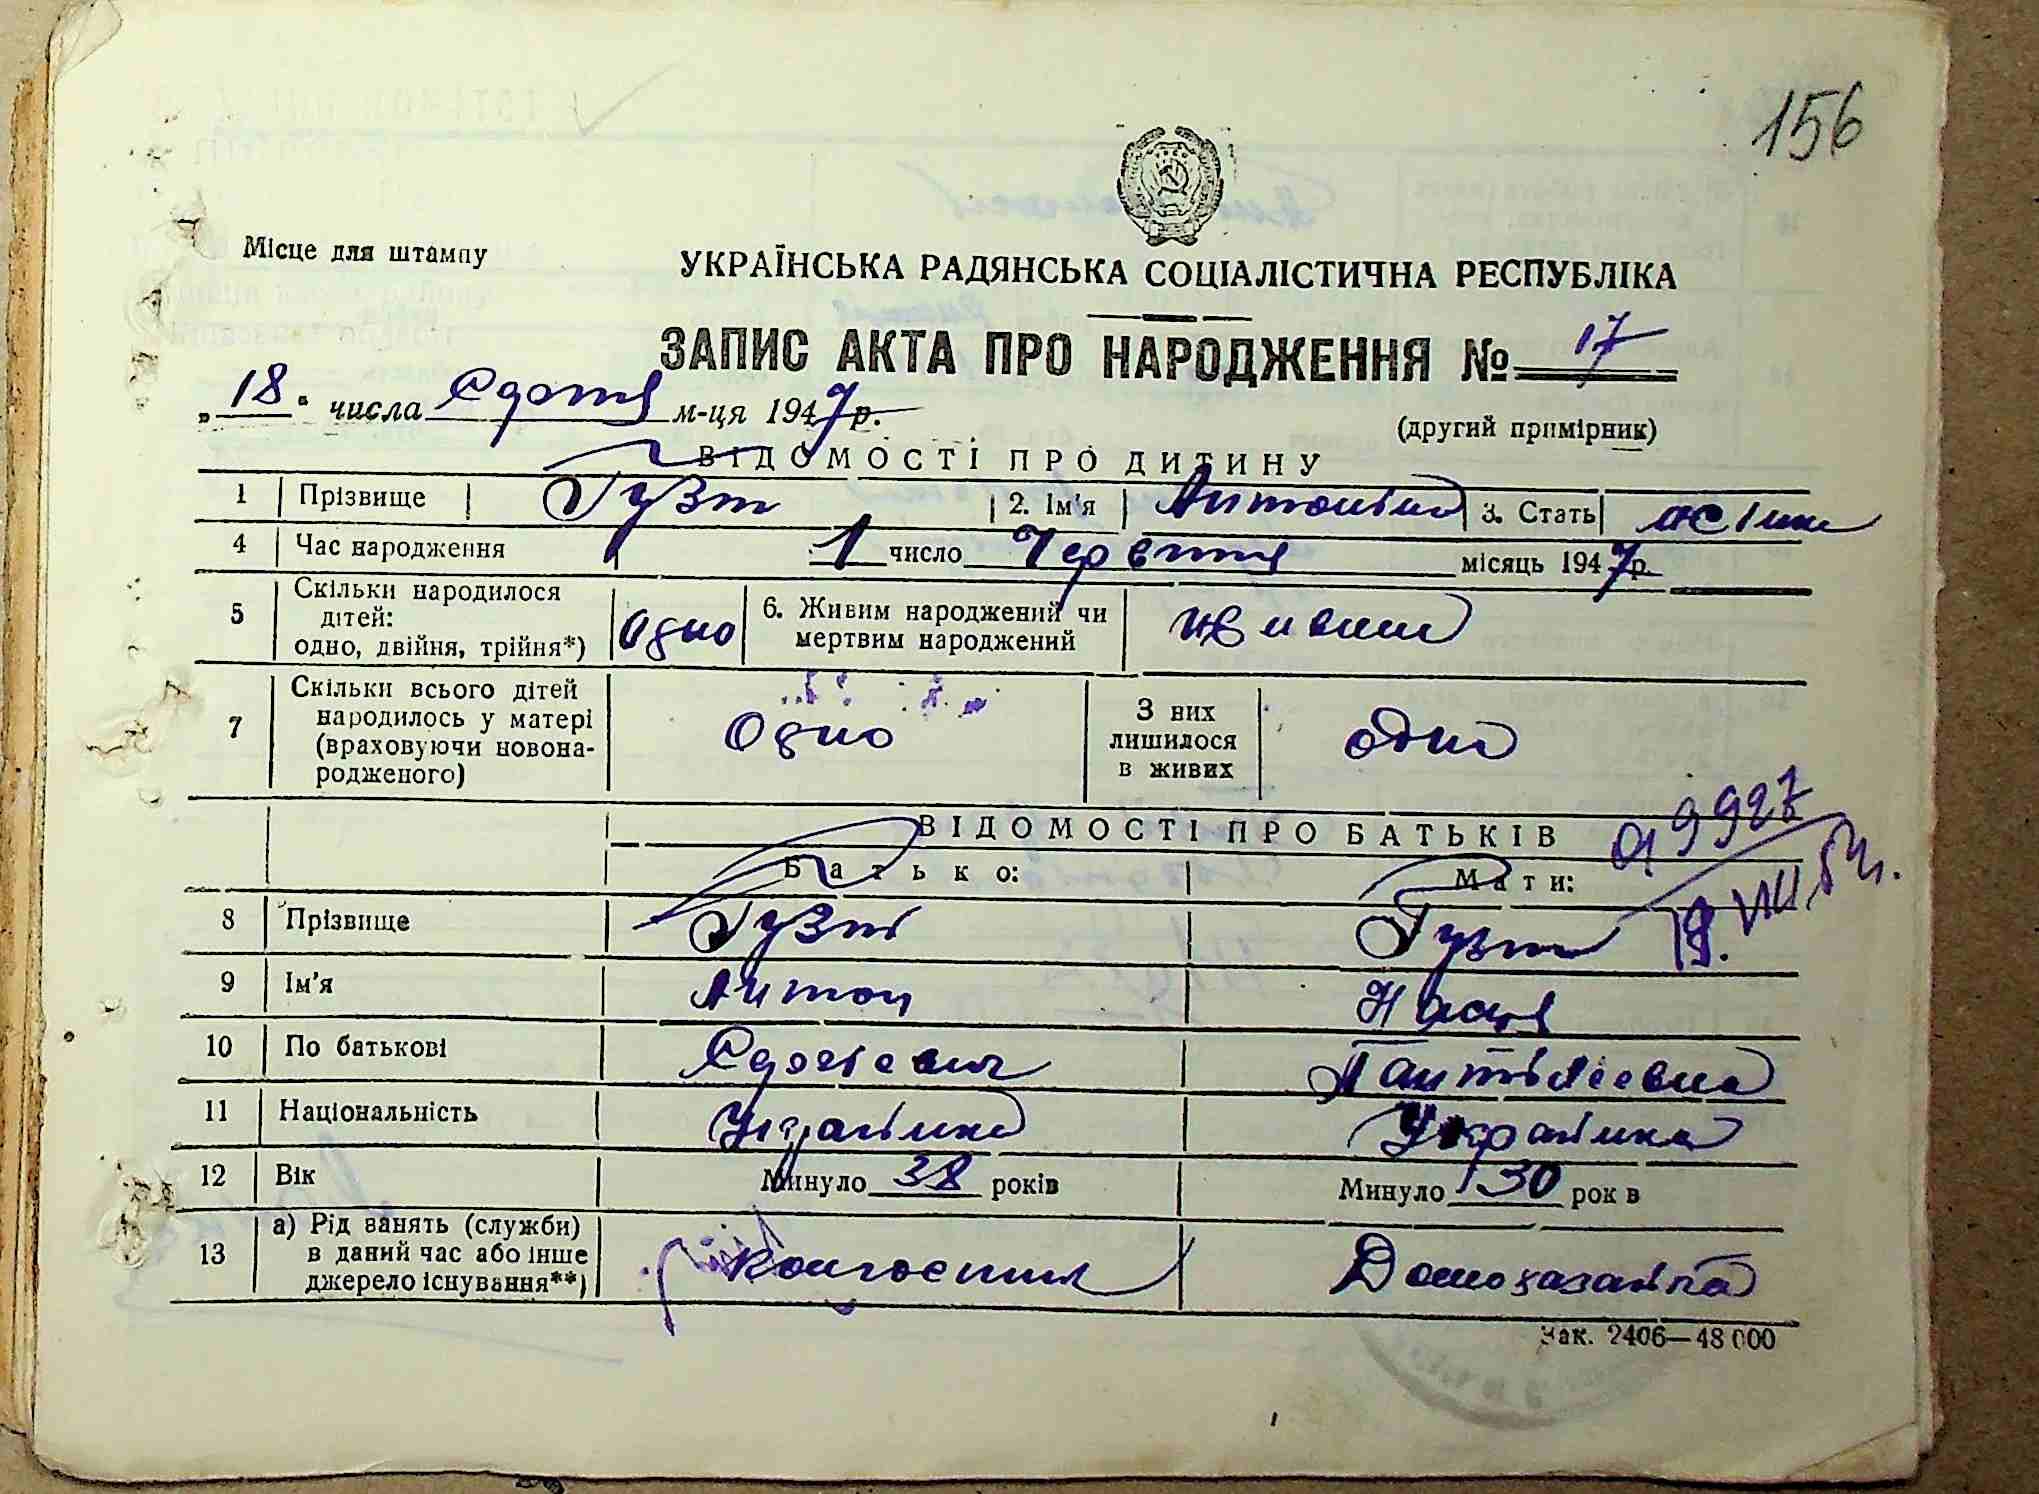 156
Місце для штампу
УКРАЇНСЬКА РАДЯНСЬКА СОЦІАЛІСТИЧНА РЕСПУБЛІКА
ЗАПИС АКТА ПРО НАРОДЖЕННЯ № 17
„18“ числа м-ця 1947 р.
(другий примірник)
ВІДОМОСТІ ПРО ДИТИНУ
1 Прізвище 2. Ім'я 3. Стать
4 Час народження 1 число Червня місяць 1947 р.
5 Скільки народилося дітей: одно, двійня, трійня*) Одно 6. Живим народжений чи мертвим народжений живим
7 Скільки всього дітей народилось у матері (враховуючи новонародженого) Одно З них лишилося в живих одно
ВІДОМОСТІ ПРО БАТЬКІВ
Батько: Мати:
8 Прізвище
9 Ім'я Антон Настя
10 По батькові
11 Національність Українка
12 Вік Минуло 38 років Минуло 30 рок в
13 а) Рід занять (служби) в даний час або інше джерело існування**)
Зак. 2406—48 000